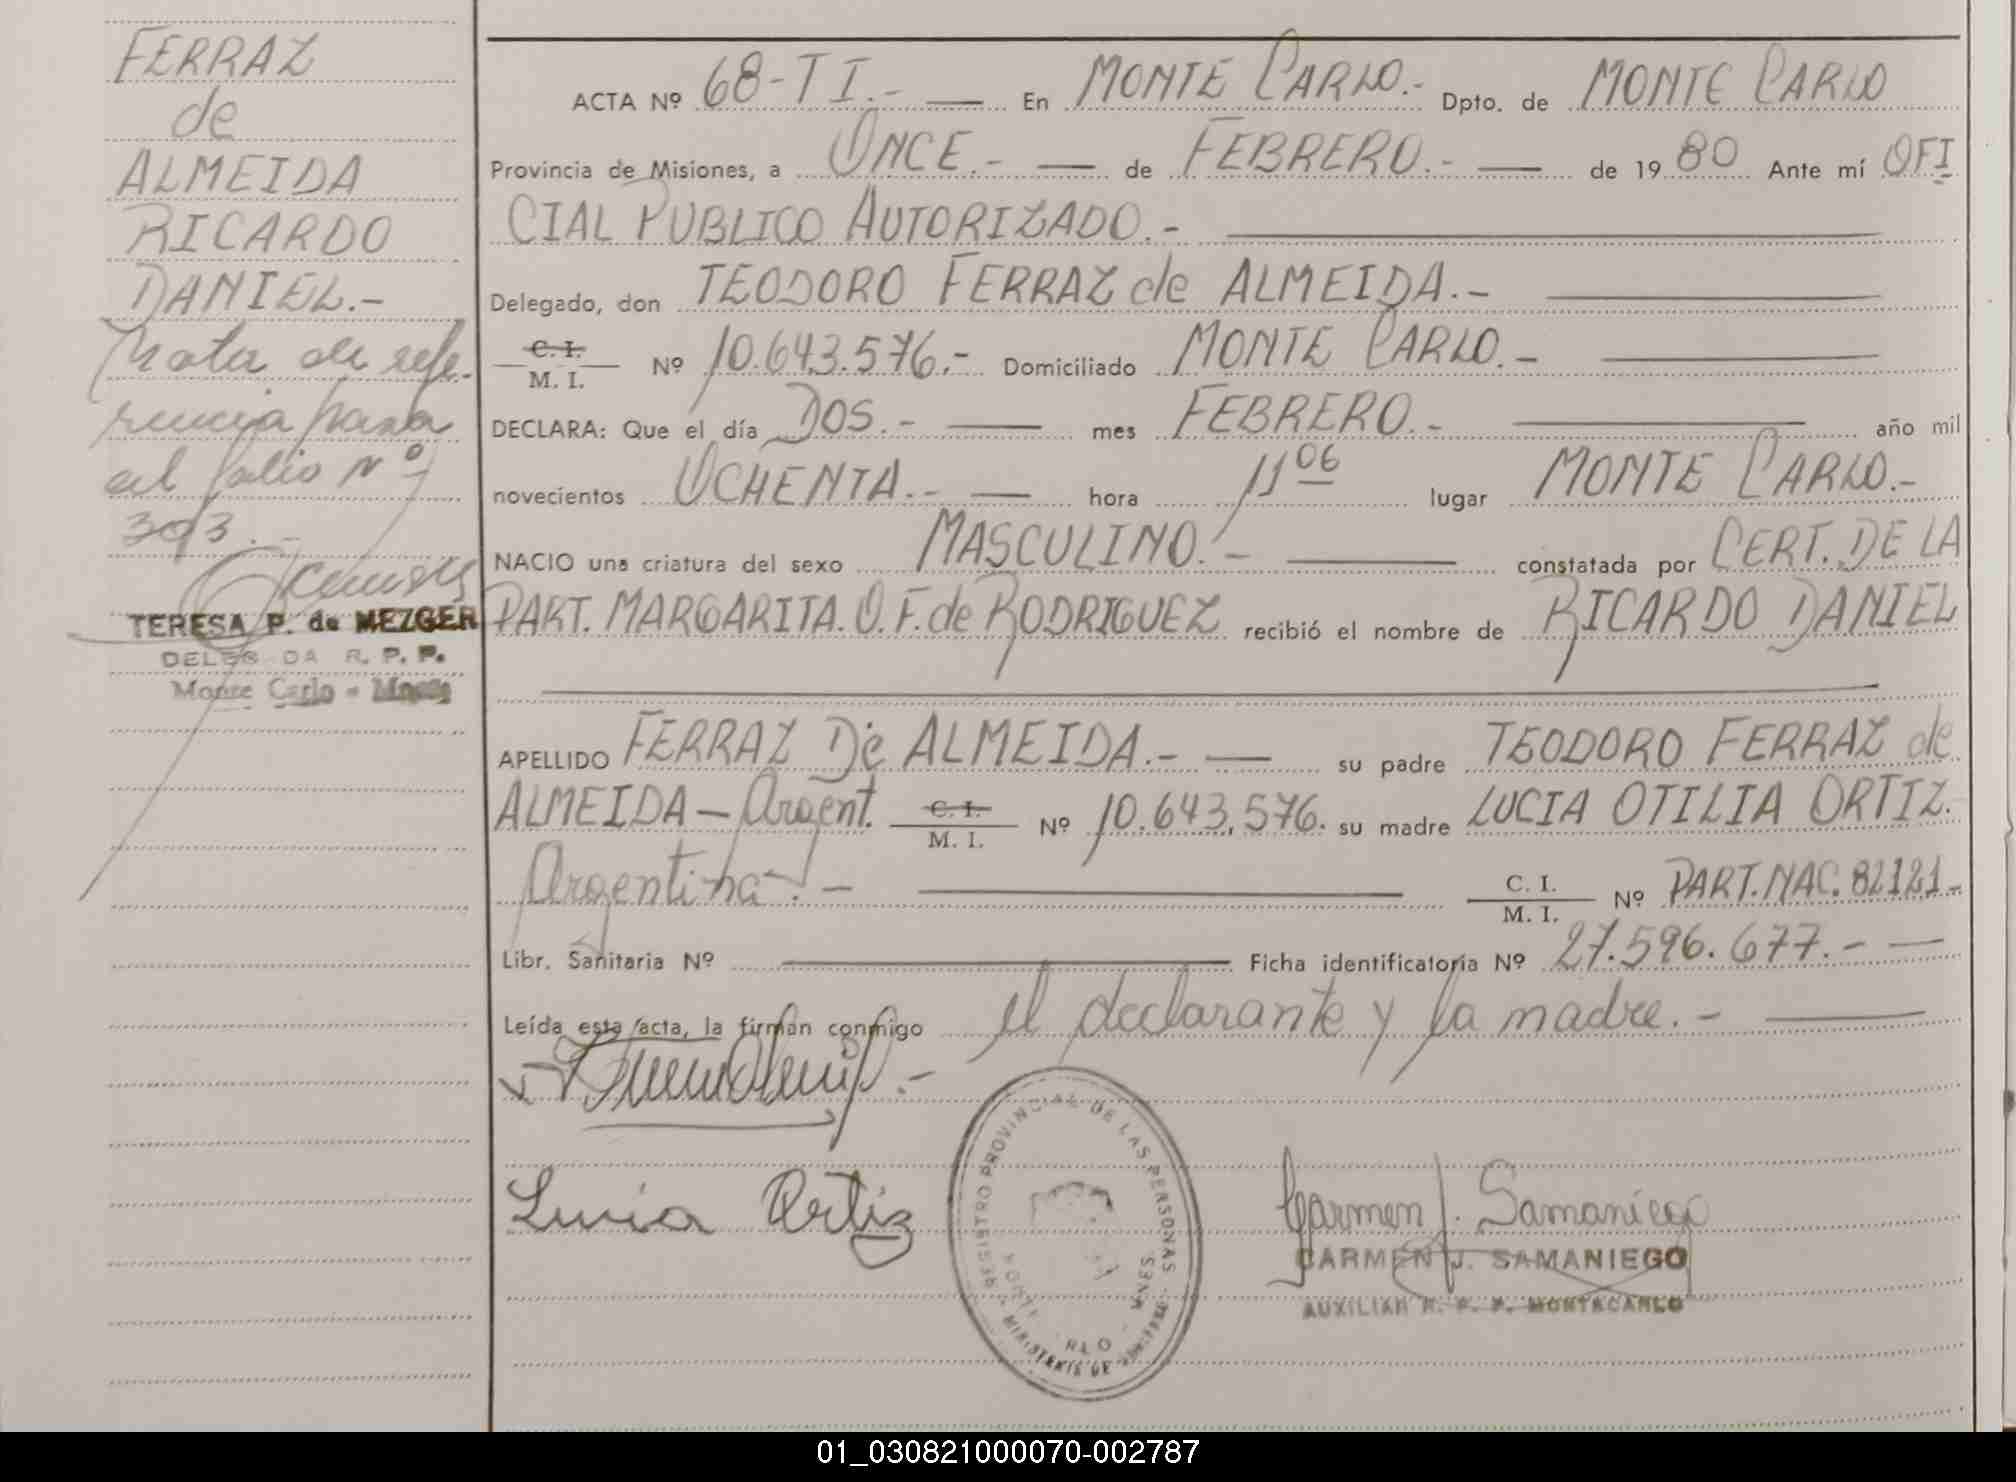 FERRAZ
de
ALMEIDA
RICARDO
DANIEL.-
Nota de refe-
rencia pasa
al folio Nº
393.-
TERESA P. de MEZGER
DELEGADA R. P. P.
Monte Carlo - Mnes
ACTA Nº 68-T I.- En MONTE CARLO.- Dpto. de MONTE CARLO
Provincia de Misiones, a ONCE.- de FEBRERO.- de 1980 Ante mí OFI
CIAL PUBLICO AUTORIZADO.-
Delegado, don TEODORO FERRAZ de ALMEIDA.-
C. I.
M. I. Nº 10.643.576.- Domiciliado MONTE CARLO.-
DECLARA: Que el día DOS.- mes FEBRERO.- año mil
novecientos OCHENTA.- hora 11 06 lugar MONTE CARLO.-
NACIO una criatura del sexo MASCULINO.- constatada por CERT. DE LA
PART. MARGARITA. O. F. de RODRIGUEZ recibió el nombre de RICARDO DANIEL
APELLIDO FERRAZ De ALMEIDA.- su padre TEODORO FERRAZ de
ALMEIDA - Argent. C. I. M. I. Nº 10.643.576. su madre LUCIA OTILIA ORTIZ.
Argentina.- C. I. M. I. Nº PART. NAC. 82121-
Libr. Sanitaria Nº Ficha identificatoria Nº 27.596.677.-
Leída esta acta, la firman conmigo el declarante y la madre.-
Lucia Ortiz
REGISTRO PROVINCIAL DE LAS PERSONAS
Carmen J. Samaniego
CARMEN J. SAMANIEGO
AUXILIAR R. P. P. MONTECARLO
01_030821000070-002787